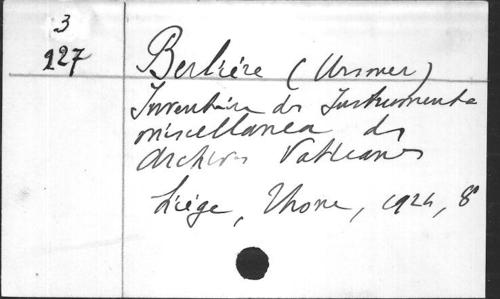 3
227
Berlière (Ursmer)
Inventaire des Instrumenta
miscellanea des
Archives Vaticanes
Liége, Thone, 1924, 8°